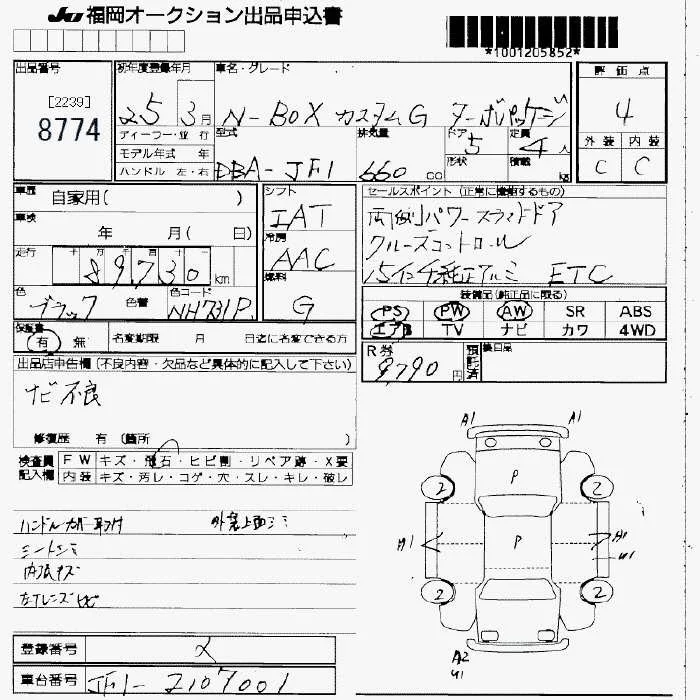 JU 福岡オークション出品申込書
*1001205852*
出品番号
[2239]
8774
初年度登録年月
25 3月
ディーラー・並行
モデル年式 年
ハンドル 左・右
車名・グレード
N-BOX カスタムG ターボパッケージ
型式
DBA-JF1
排気量
660 CC
ドア
5
形状
定員
4人
積載
kg
評価点
4
外装 内装
C C
車歴
自家用( )
車検
年 月( 日)
走行
十 万 千 百 十
89730 km
色
ブラック
色替
色コード
NH731P
シフト
IAT
冷房
AAC
燃料
G
セールスポイント (正常に機能するもの)
両側パワースライドドア
クルーズコントロール
15インチ純正アルミ ETC
装備品(純正品に限る)
PS PW AW SR ABS
エアB TV ナビ カワ 4WD
保証書
有 無
名変期限 月 日迄に名変できる方
R券
9,790 円
預託済
後日品
出品店申告欄 (不良内容・欠品など具体的に記入して下さい)
ナビ不良
修復歴 有 (箇所 )
検査員記入欄
FW キズ・飛石・ヒビ割・リペア跡・X要
内装 キズ・汚レ・コゲ・穴・スレ・キレ・破レ
ハンドルカバー取付 外装上面シミ
シートシミ
内張キズ
左Tレンズヒビ
登録番号
メ
車台番号
JF1-2107001
A1 A1
P
2 2
A1 P A1
U1
2 2
A2
U1